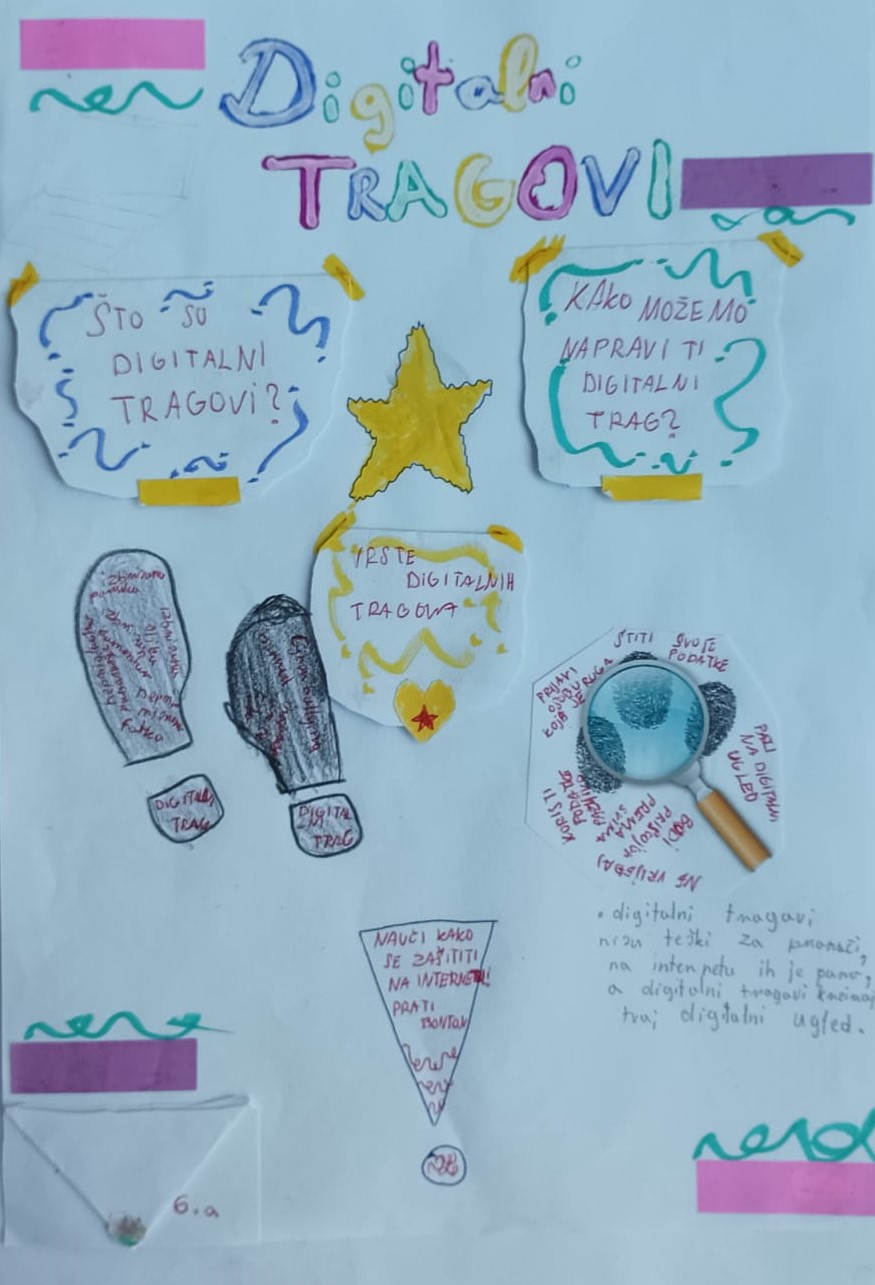 Digitalni
TRAGOVI
ŠTO SU
DIGITALNI
TRAGOVI?
KAKO MOŽEMO
NAPRAVITI
DIGITALNI
TRAG?
VRSTE
DIGITALNIH
TRAGOVA
DIGITALNI
TRAG
DIGITAL
TRAG
ŠTITI SVOJE
PODATKE
PRIJAVI
OSOBU
KOJA SE RUGA
PAZI
NA DIGITALNI
UGLED
KORISTI
PODATKE
BUDI
PRISTOJAN
PREMA
SVIMA
NE VRIJEĐAJ
NAUČI KAKO
SE ZAŠTITITI
NA INTERNETU!
PRATI
BONTON
• digitalni tragovi
nisu teški za pronaći,
na internetu ih je puno,
a digitalni tragovi
tvoj digitalni ugled.
6.a